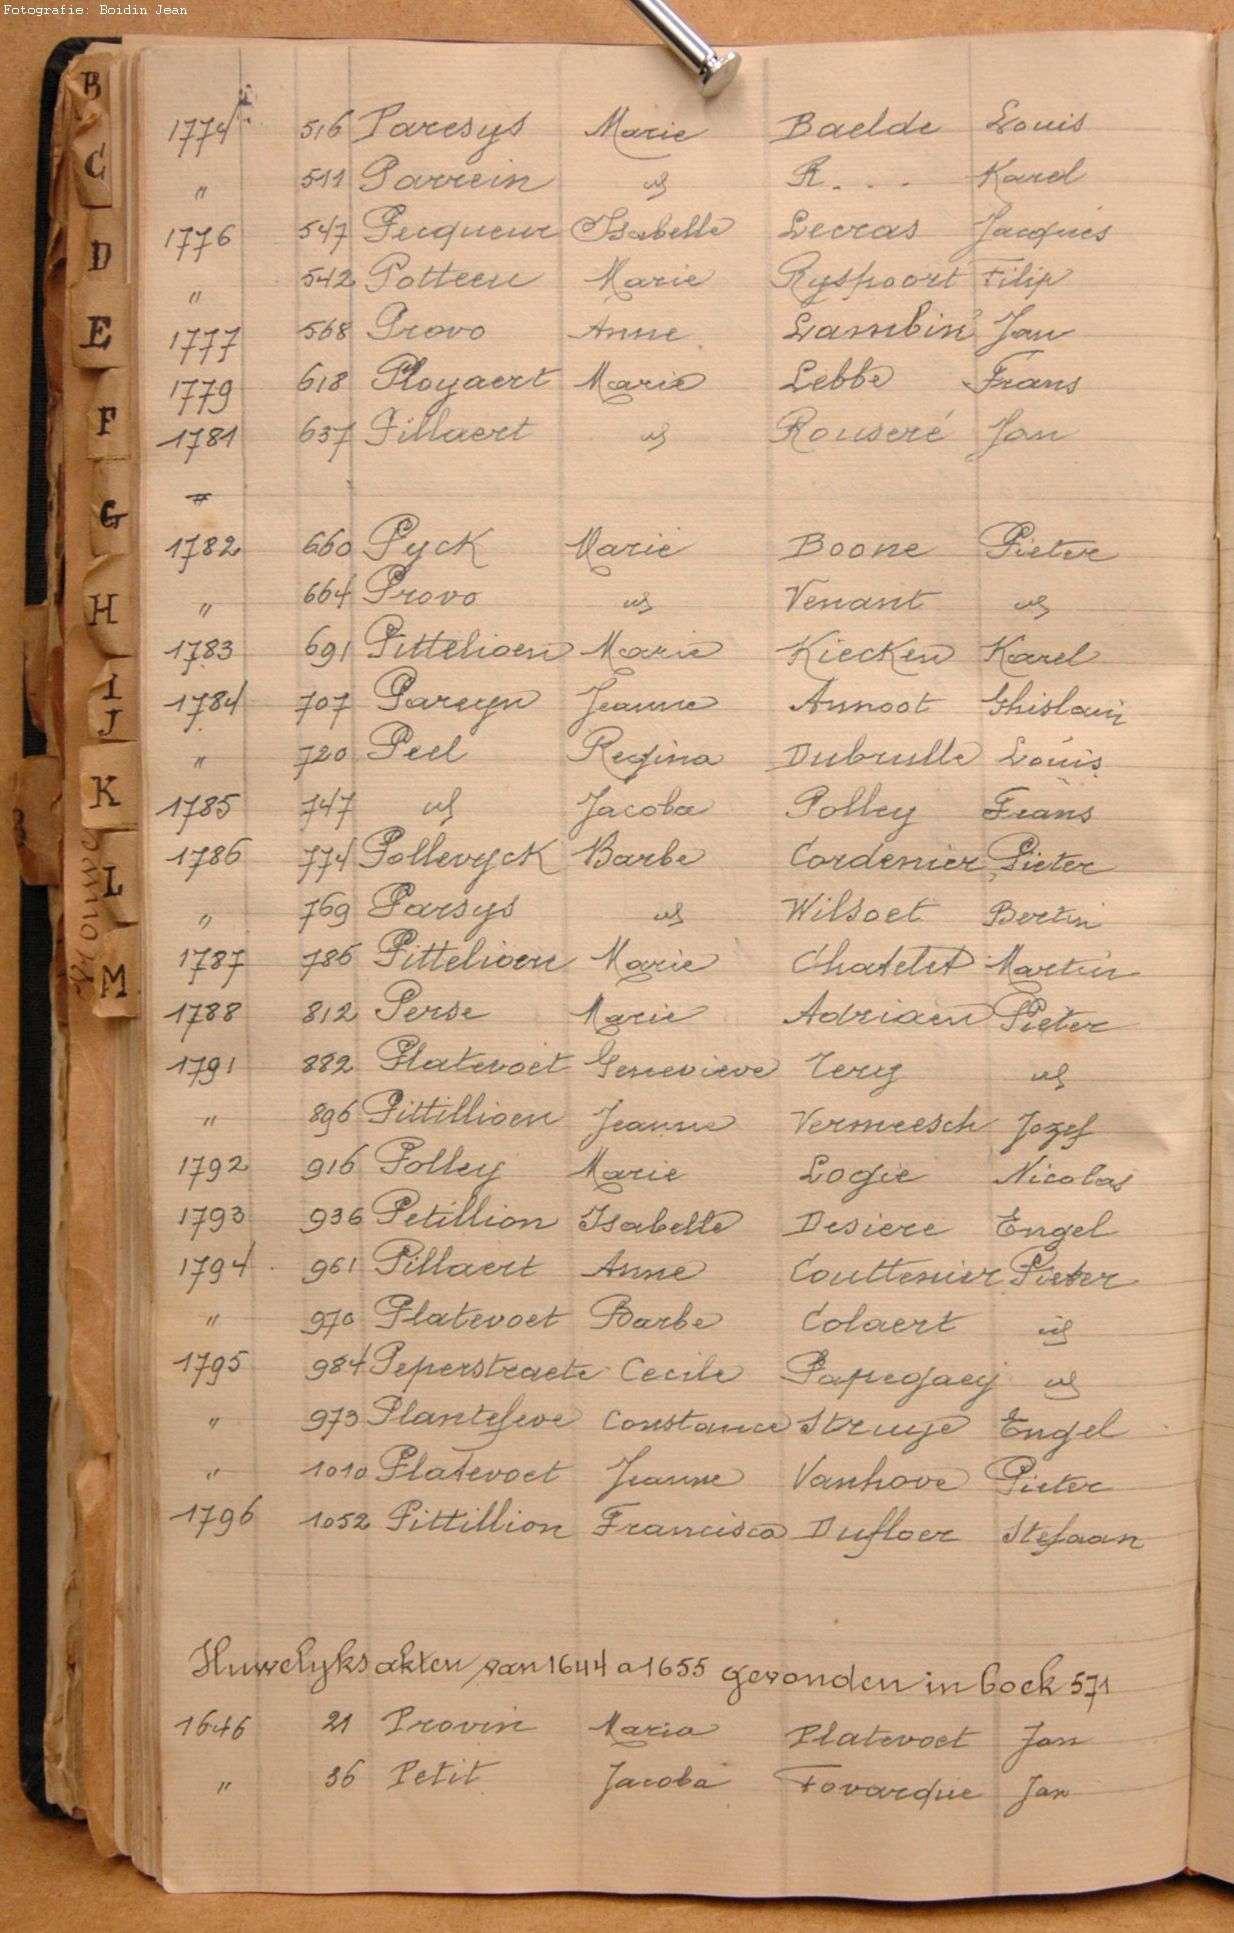 Fotografie: Boidin Jean
B
C
D
E
F
G
H
I
J
K
L
M
1774 516 Paresys Marie Baelde Louis
" 511 Parrein id R... Karel
1776 547 Pecqueur Isabelle Lecras Jacques
" 542 Potteeu Marie Ryspoort Filip
1777 568 Provo Anne Lambin Jan
1779 618 Ployaert Marie Lebbe Frans
1781 637 Pillaert id Rouseré Jan
"
1782 660 Pyck Marie Boone Pieter
" 664 Provo id Venant id
1783 691 Pittelioen Marie Kiecken Karel
1784 707 Pareyn Jeanne Annoot Ghislain
" 720 Peel Regina Dubrulle Louis
1785 747 id Jacoba Polley Frans
1786 774 Pollevyck Barbe Cordenier Pieter
" 769 Parsys id Wilsoet Bertin
1787 786 Pittelioen Marie Chatelet Martin
1788 812 Perse Marie Adriaen Pieter
1791 882 Platevoet Genevieve Tery id
" 896 Pittillioen Jeanne Vermeesch Jozef
1792 916 Polley Marie Logie Nicolas
1793 936 Petillion Isabelle Desiere Engel
1794 961 Pillaert Anne Couttenier Pieter
" 970 Platevoet Barbe Colaert id
1795 984 Peperstraete Cecile Papegaey id
" 973 Plantefeve Constance Struye Engel
" 1010 Platevoet Jeanne Vanhove Pieter
1796 1052 Pittillion Francisca Dufloer Stefaan
Huwelyksakten van 1644 a 1655 gevonden in boek 571
1646 21 Provin Maria Platevoet Jan
" 36 Petit Jacoba Fovarque Jan